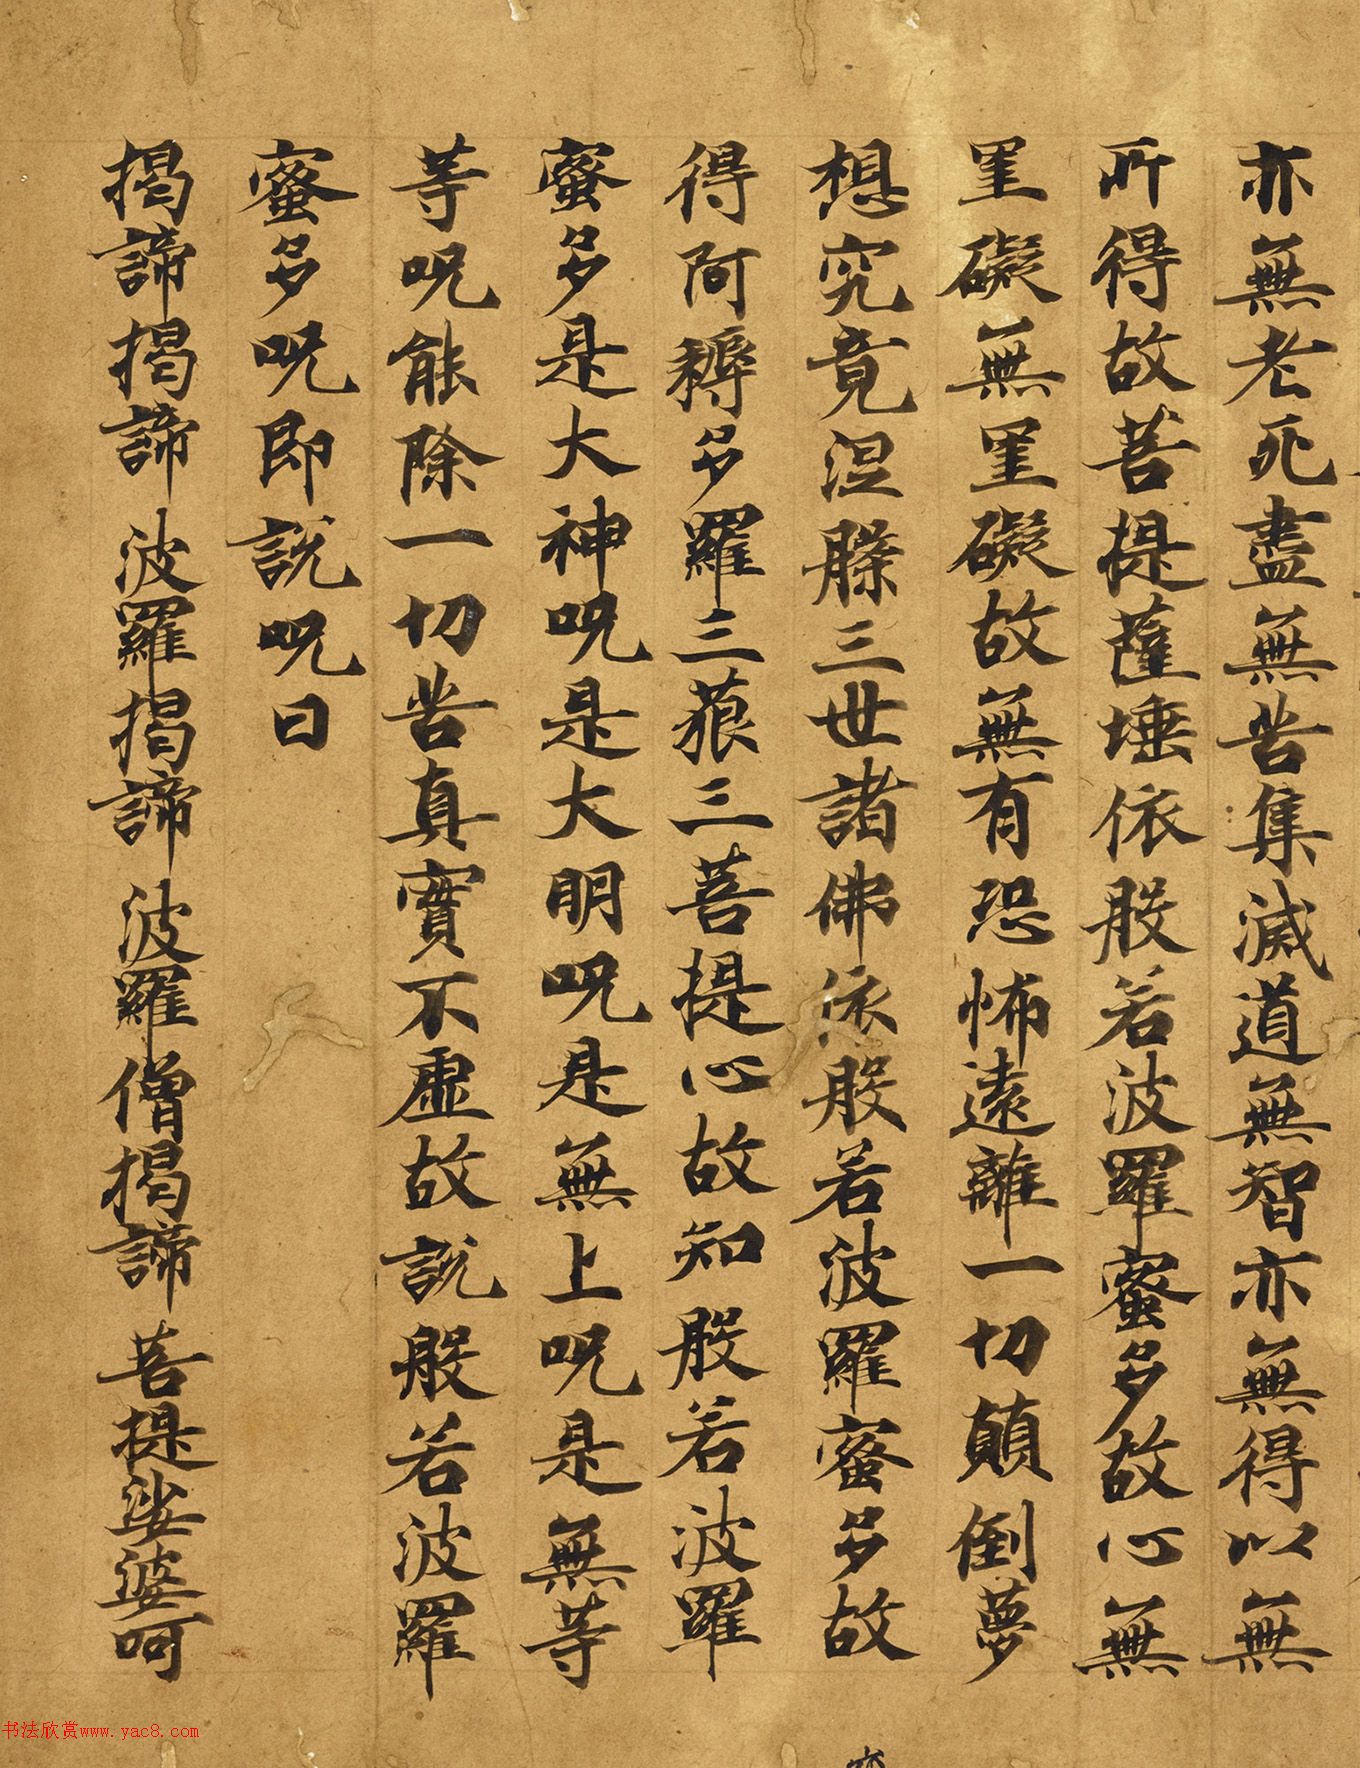 亦無老死盡無苦集滅道無智亦無得以無
所得故菩提薩埵依般若波羅蜜多故心無
罣礙無罣礙故無有恐怖遠離一切顛倒夢
想究竟涅槃三世諸佛依般若波羅蜜多故
得阿耨多羅三藐三菩提心故知般若波羅
蜜多是大神呪是大明呪是無上呪是無等
等呪能除一切苦真實不虛故說般若波羅
蜜多呪即說呪曰
揭諦揭諦 波羅揭諦 波羅僧揭諦 菩提娑婆呵
书法欣赏www.yac8.com